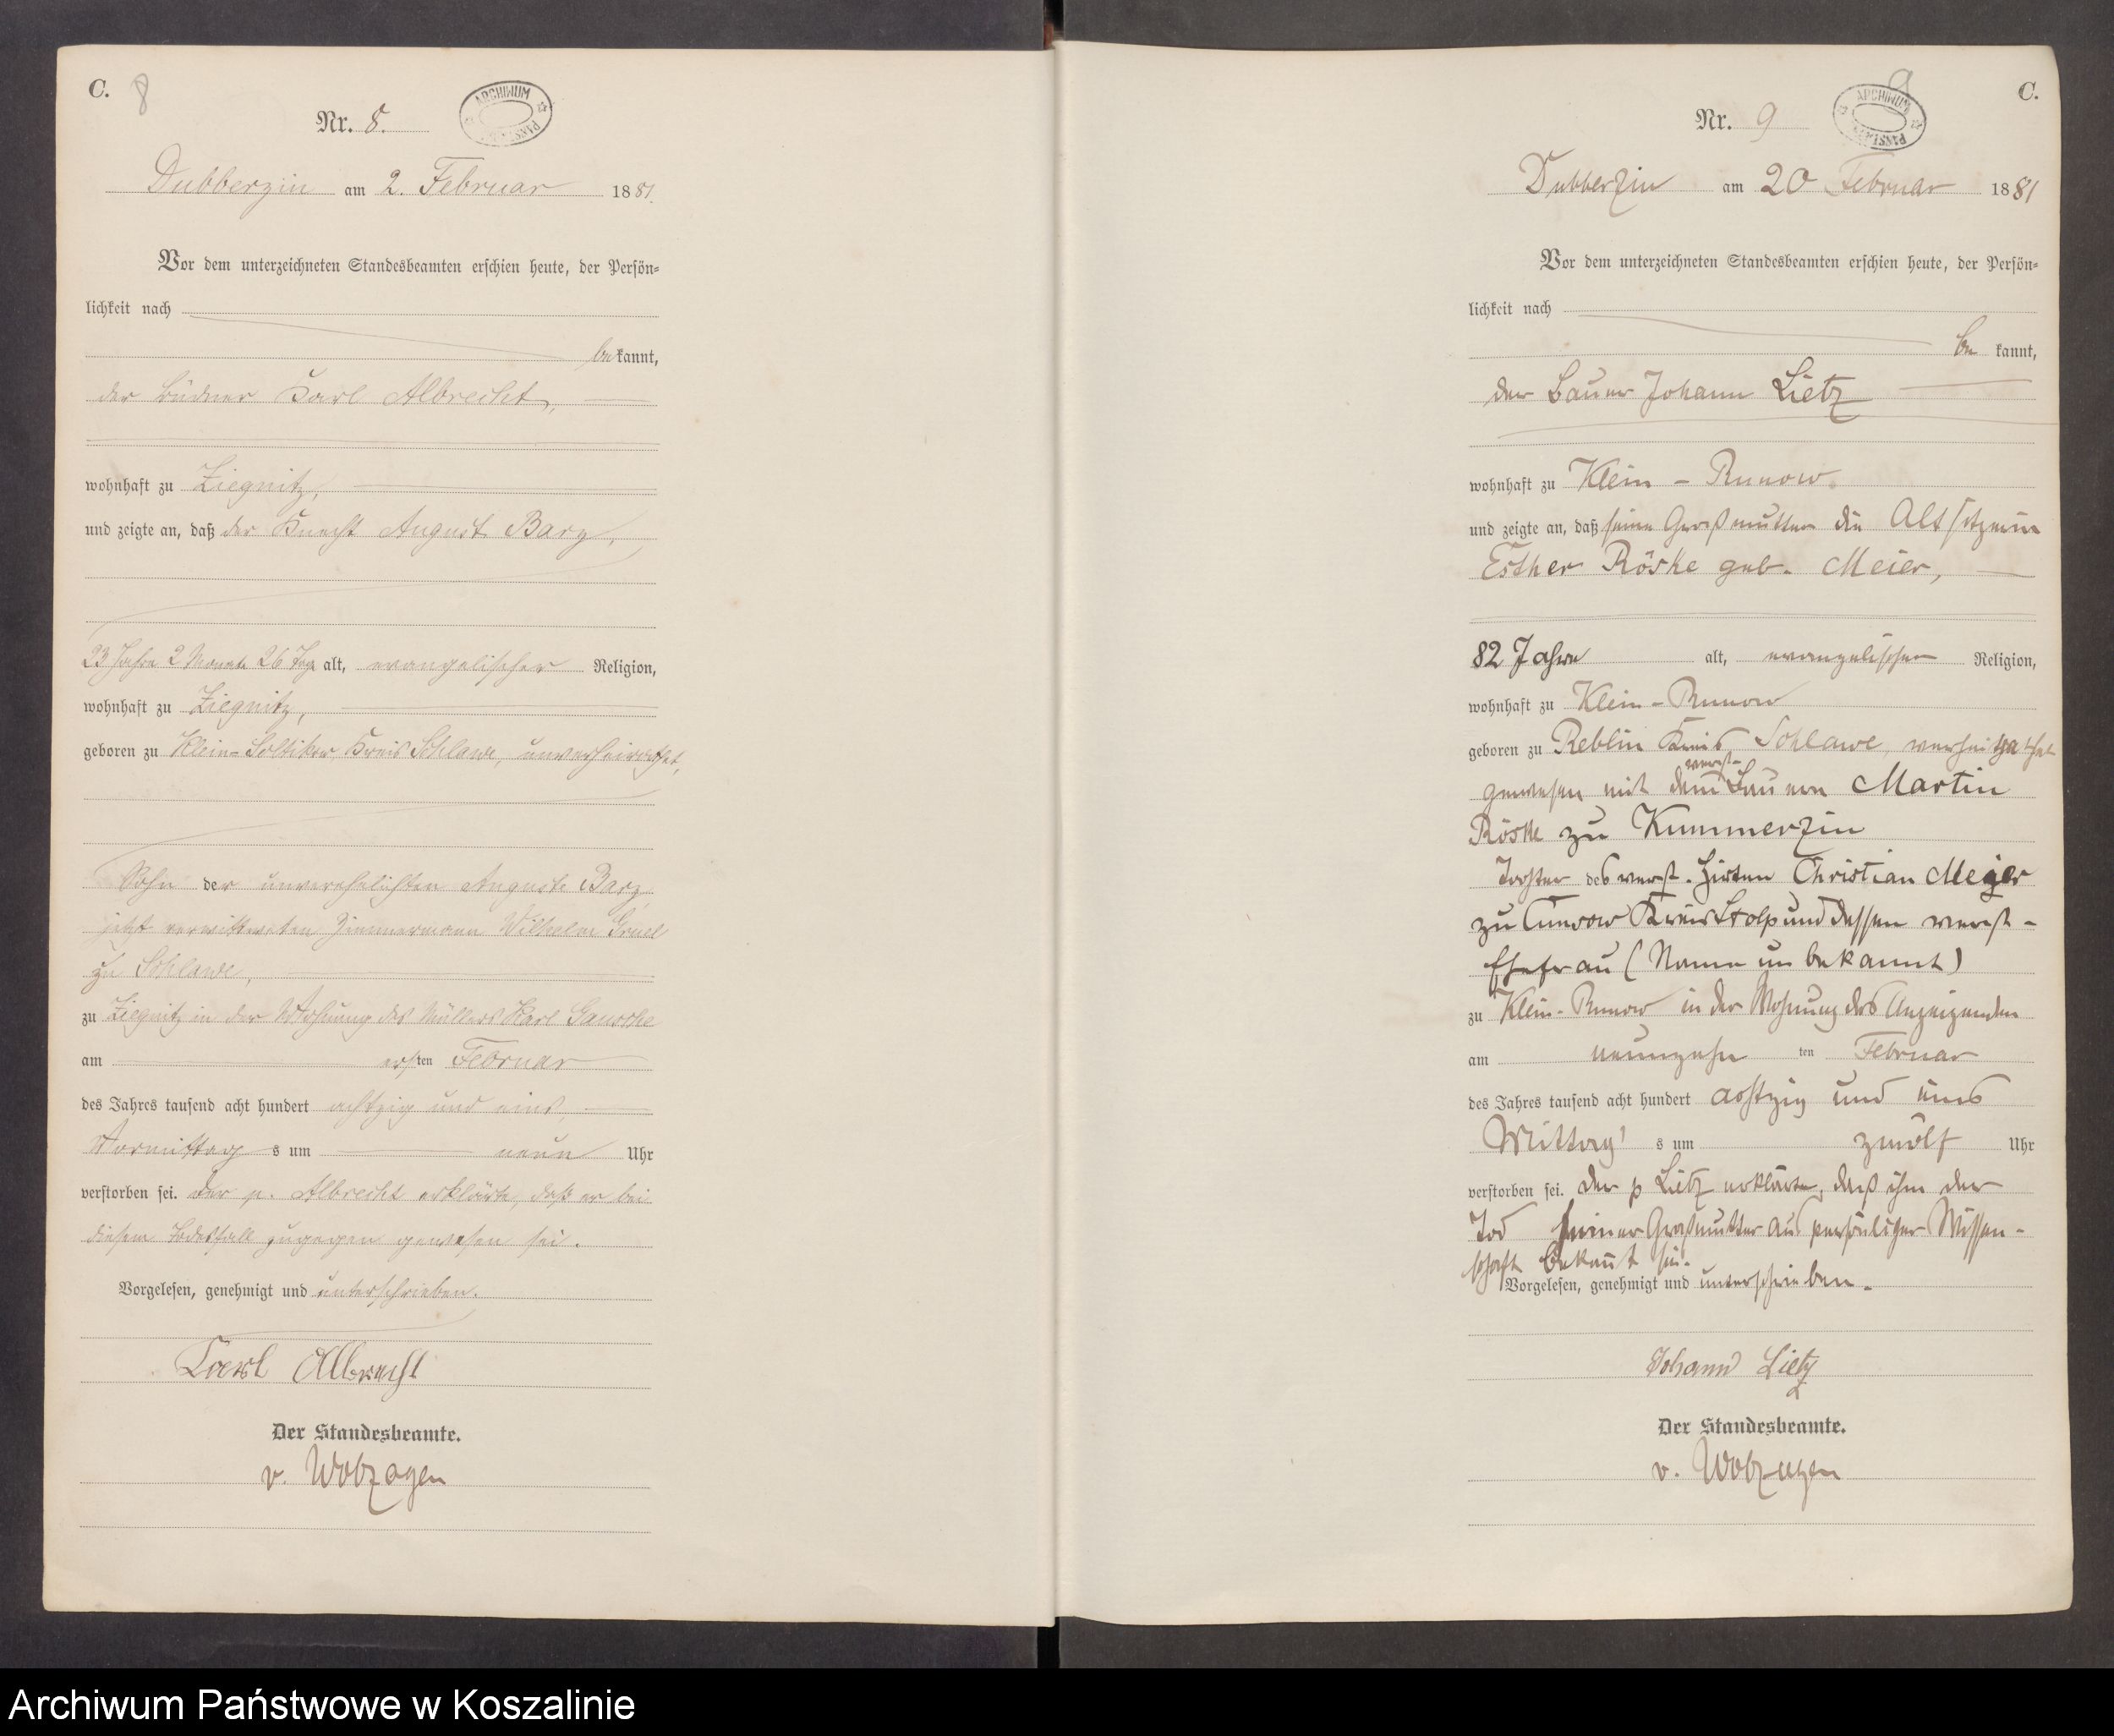 C. 8
ARCHIWUM PAŃSTW
Nr. 8.
Dubberzin am 2. Februar 1881.
Vor dem unterzeichneten Standesbeamten erschien heute, der Persön=
lichkeit nach
bekannt,
der Büdner Karl Albrecht,
wohnhaft zu Ziegnitz,
und zeigte an, daß der Knecht August Barz,
23 Jahre 2 Monate 26 Tage alt, evangelischer Religion,
wohnhaft zu Ziegnitz,
geboren zu Klein-Soltikow, Kreis Schlawe, unverheirathet,
Sohn der unverehelichten Auguste Barz,
jetzt verwittweten Zimmermann Wilhelm Gruel
zu Schlawe,
zu Ziegnitz in der Wohnung des Müllers Karl
am ersten Februar
des Jahres tausend acht hundert achtzig und eins,
Vormittags um neun Uhr
verstorben sei. Der p. Albrecht erklärte, daß er bei
diesem Todesfall zugegen gewesen sei.
Vorgelesen, genehmigt und unterschrieben.
Carl Albrecht
Der Standesbeamte.
v. Wobzagen
9 C.
ARCHIWUM PAŃSTW
Nr. 9
Dubberzin am 20 Februar 1881
Vor dem unterzeichneten Standesbeamten erschien heute, der Persön=
lichkeit nach
be kannt,
der Bauer Johann Lietz
wohnhaft zu Klein-Runow
und zeigte an, daß seine Großmutter die Altsitzerin
Esther Röske geb. Meier,
82 Jahre alt, evangelischer Religion,
wohnhaft zu Klein-Runow
geboren zu Reblin Kreis Schlawe, verheirathet
gewesen mit dem verst. Bauern Martin
Röske zu Kummerzin
Tochter des verst. Hirten Christian Meier
zu Kreis Stolp und dessen verst.
Ehefrau (Name unbekannt)
zu Klein-Runow in der Wohnung des Anzeigenden
am neunzehnten Februar
des Jahres tausend acht hundert achtzig und eins
Mittags um zwölf Uhr
verstorben sei. Der p Lietz erklärte, daß ihm der
Tod seiner Großmutter aus persönlicher Wissen-
schaft bekannt sei.
Vorgelesen, genehmigt und unterschrieben.
Johann Lietz
Der Standesbeamte.
v. Wobzagen
Archiwum Państwowe w Koszalinie